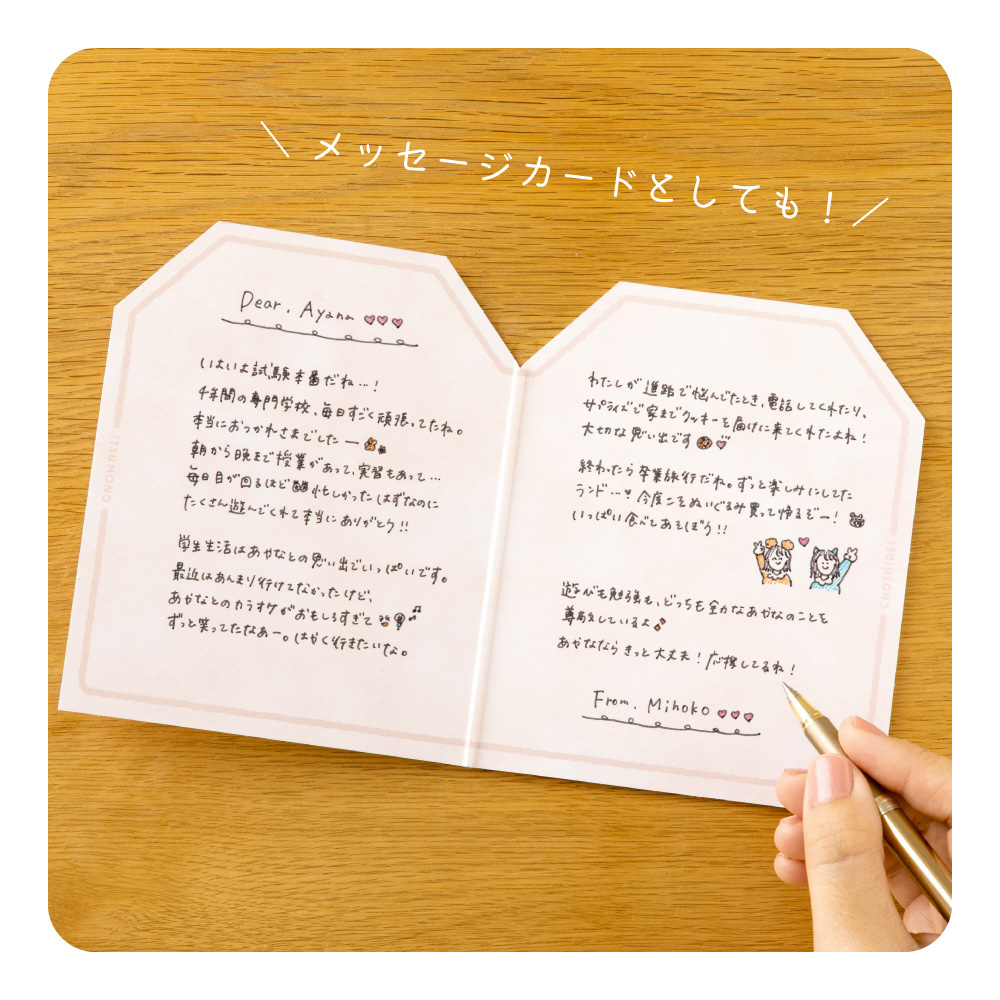 ＼メッセージカードとしても！／
Dear. Ayana
いよいよ試験本番だね…！
4年間の専門学校、毎日すごく頑張ってたね。
本当におつかれさまでしたー
朝から晩まで授業があって、実習もあって…
毎日目が回るほど忙しかったはずなのに
たくさん遊んでくれて本当にありがとう!!
学生生活はあやなとの思い出でいっぱいです。
最近はあんまり行けてなかったけど、
あやなとのカラオケがおもしろすぎて
ずっと笑ってたなあー。はやく行きたいな。
ITSUMONO
わたしが進路で悩んでたとき、電話してくれたり、
サプライズで家までクッキーを届けに来てくれたよね！
大切な思い出です
終わったら卒業旅行だね。ずっと楽しみにしてた
ランド…！今度こそぬいぐるみ買って帰るぞー！
いっぱい食べてあそぼう!!
遊びも勉強も、どっちも全力なあやなのことを
尊敬しているよ
あやなならきっと大丈夫！応援してるね！
From. Mihoko
CHOSHIDE!